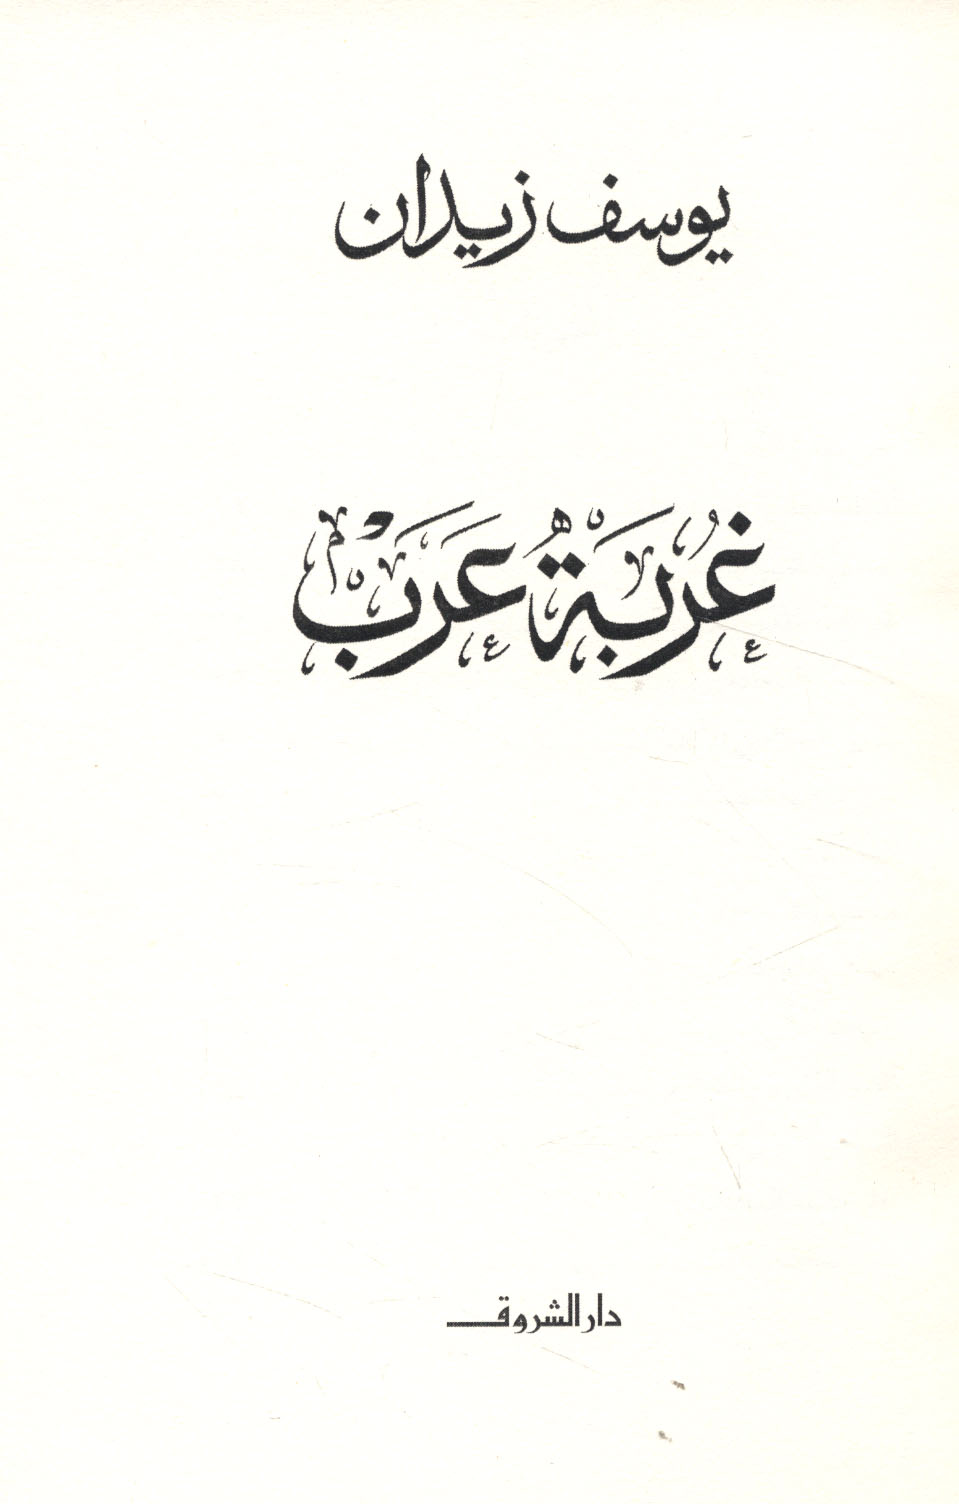 يوسف زيدان
غُربَةُ عَرَبْ
دار الشروق